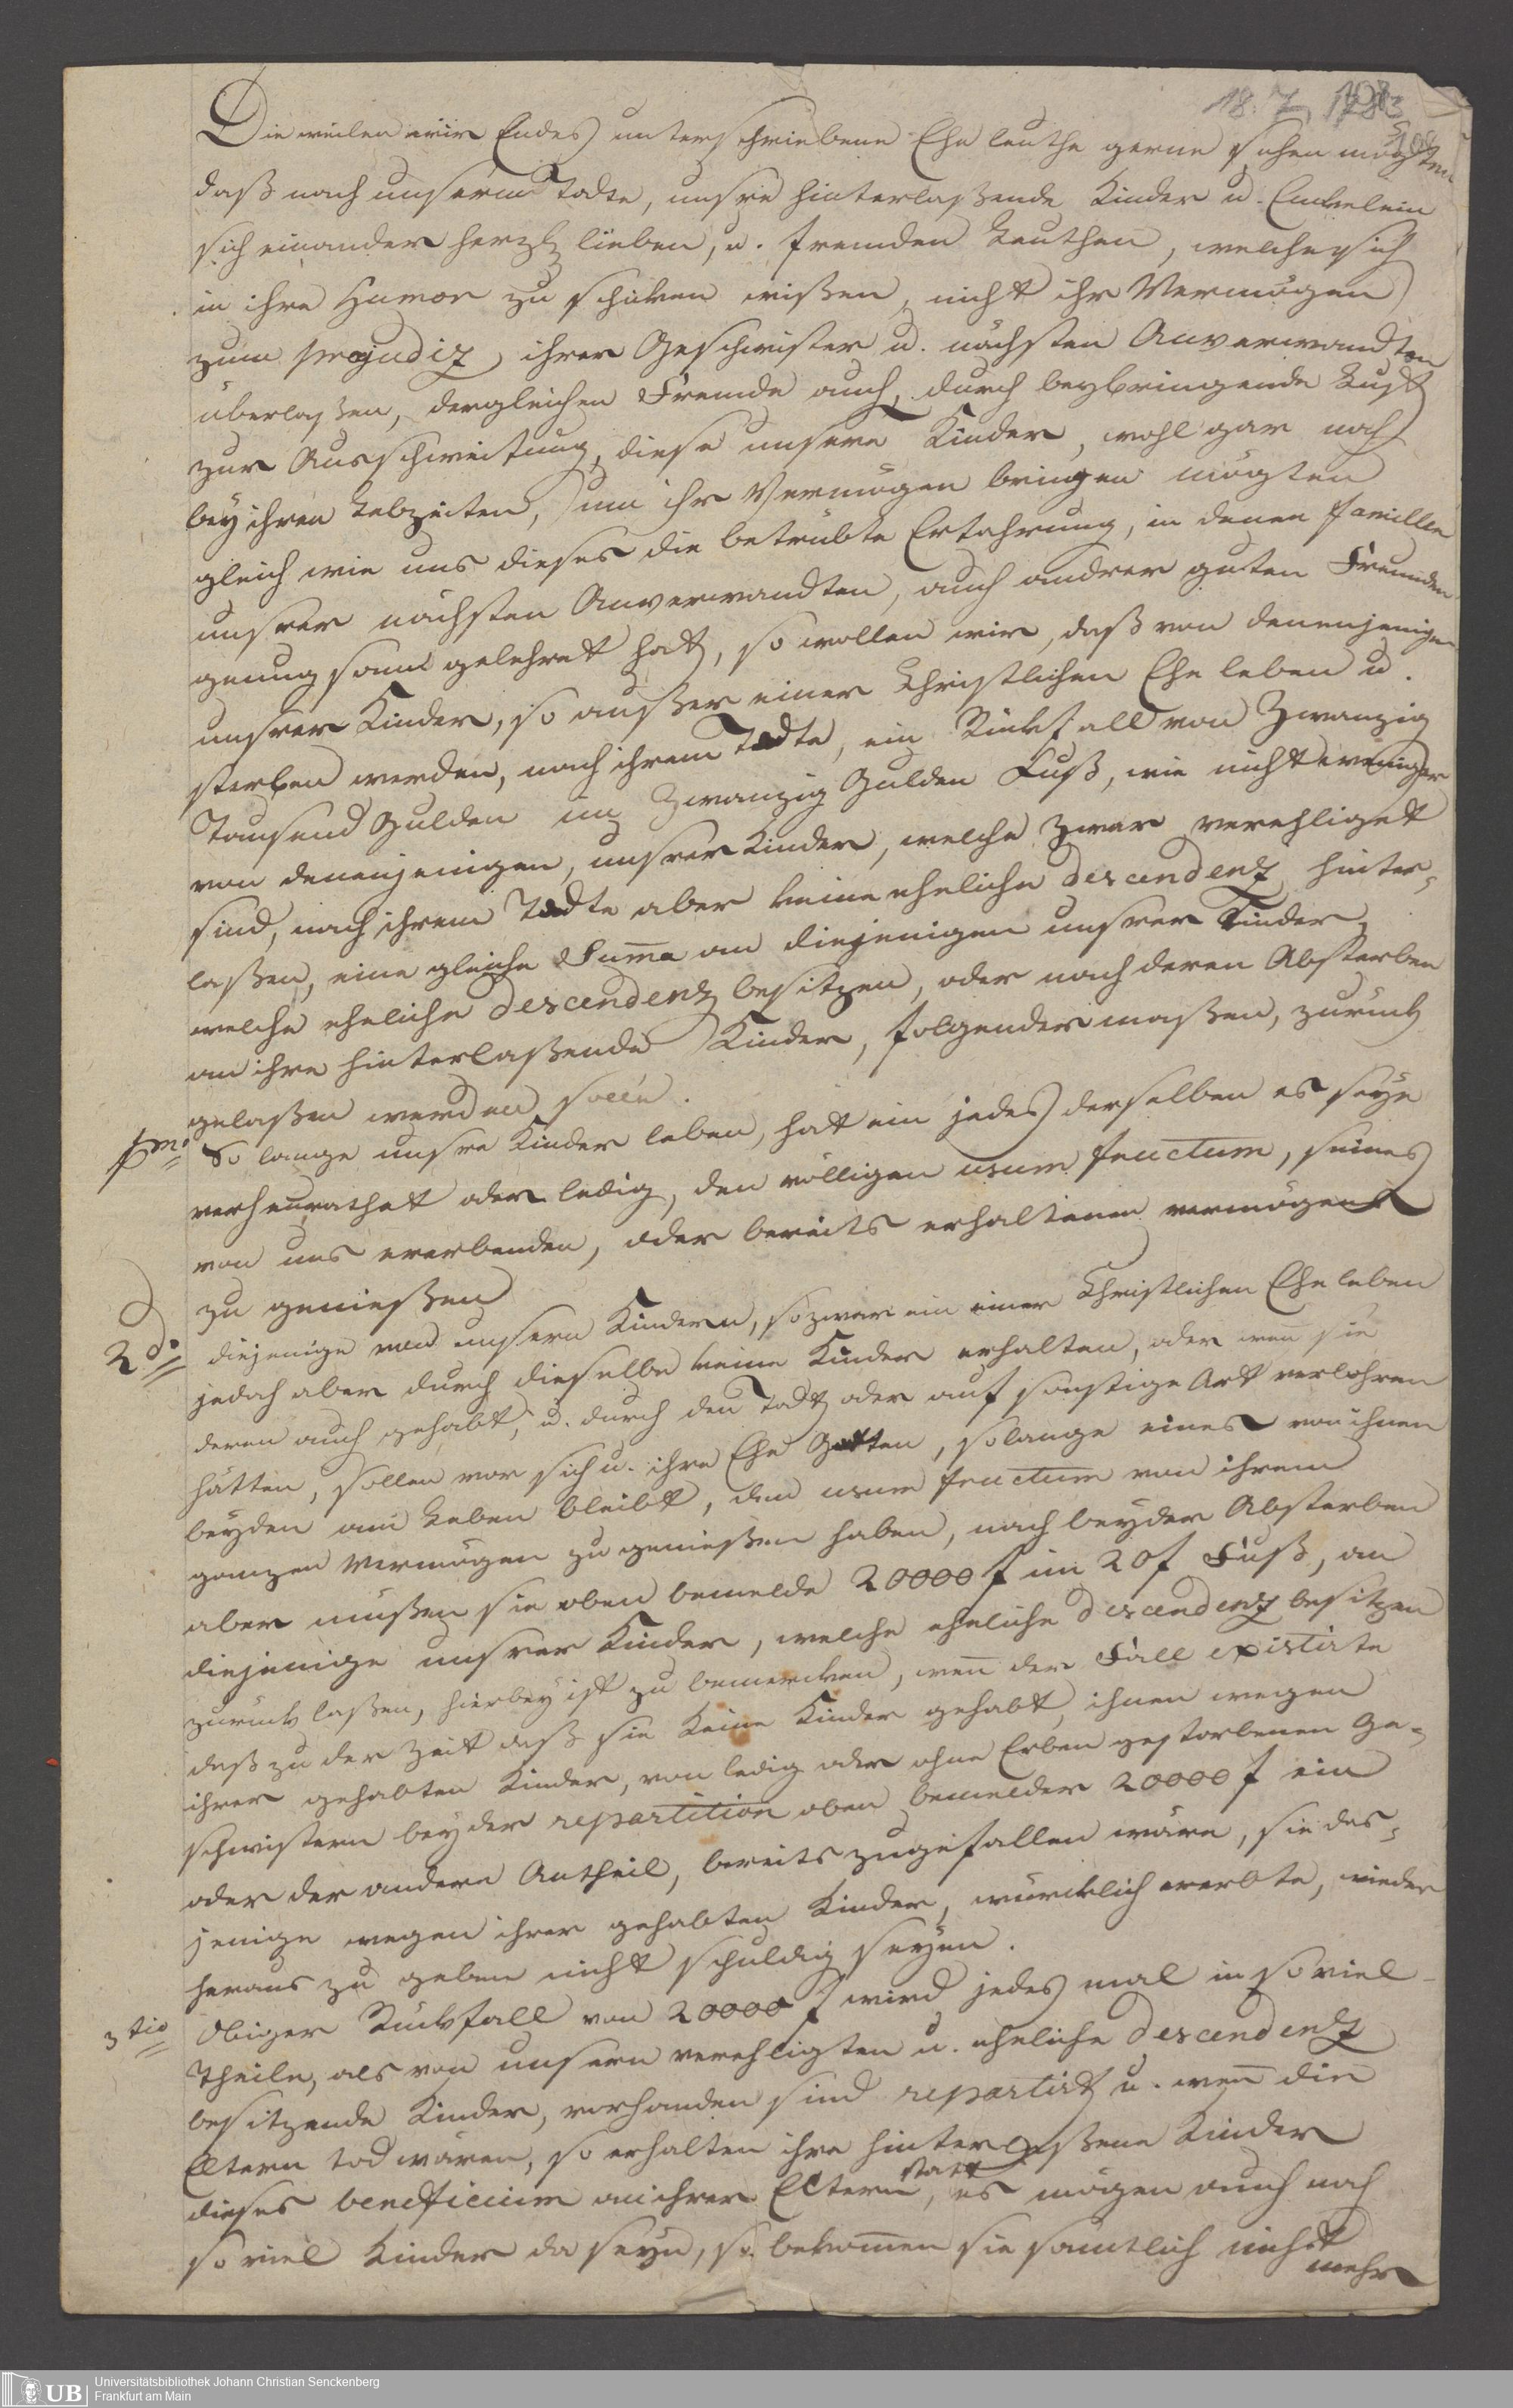 18. 7. 1783
Die weilen wir Endes unterschriebene Ehe leuthe gerne sehen mögten
daß nach unserm Todte, unsre hinterlaßende Kinder u. Enckelein
sich einander herzl. lieben, u. fremden Leuthen, welche sich
in ihre Humor zu schicken wißen, nicht ihr Vermögen
zum prejudiz ihrer Geschwister u. nächsten Anverwandten
überlaßen, dergleichen Fremde auch, durch beybringende Lust
zur Ausschweifung, diese unsere Kinder, wohl gar noch
bey ihren Lebzeiten, um ihr Vermögen bringen mögten
gleich wie uns dieses die betrübte Erfahrung, in denen famillen
unsrer nächsten Anverwandten, auch andrer guten Freunden
genugsam gelehret hat, so wollen wir, daß von denenjenigen
unsrer Kinder, so außer einer Christlichen Ehe leben u.
sterben werden, nach ihrem Todte, ein Rückfall von Zwanzig
Tausend Gulden im Zwanzig Gulden Fuß, wie nicht weniger
von denenjenigen, unsrer Kinder, welche zwar verehliget
sind, nach ihrem Todte aber keine eheliche descendenz hinter-
laßen, eine gleiche Suma an diejenigen unsrer Kinder,
welche eheliche descendenz besitzen, oder nach deren Absterben
an ihre hinterlaßende Kinder, folgender maßen, zurück
gelaßen werden solle.
pmo So lange unsre Kinder leben, hat ein jedes derselben es seye
verheurathet oder ledig, den völligen usum fructum, seines
von uns ererbenden, oder bereits erhaltenen vermögens
zu genießen
2do diejenige von unsern Kindern, so zwar in einer Christlichen Ehe leben
jedoch aber durch dieselbe keine Kinder erhalten, oder wen sie
deren auch gehabt, u. durch den Todt oder auf sonstige Art verlohren
hätten, sollen vor sich u. ihre Ehe Gatten, solange eines von ihnen
beyden am Leben bleibt, den usum fructum von ihrem
ganzen Vermögen zu genießen haben, nach beyder Absterben
aber müßen sie oben bemelde 20000 f im 20 f Fuß, an
diejenige unsrer Kinder, welche eheliche descendenz besitzen
zurück laßen, hierbey ist zu bemercken, wen der Fall existirte
daß zu der Zeit daß sie Keine Kinder gehabt, ihnen wegen
ihrer gehabten Kinder, von ledig oder ohne Erben gestorbenen Ge-
schwistern bey der repartition oben bemelder 20000 f ein
oder der andere Antheil, bereits zugefallen wäre, sie das-
jenige wegen ihrer gehabten Kinder, würcklich ererbte, wieder
heraus zu geben nicht schuldig seyen.
3tio Obiger Rückfall von 20000 f wird jedes mal in so viel
Theile, als von unsern verehligten u. eheliche descendenz
besitzende Kinder, vorhanden sind repartirt u. wen die
Eltern tod wären, so erhalten ihre hinterlaßene Kinder
dieses beneficium an ihrer Eltern statt, es mögen auch noch
so viel Kinder da seyn, so bekomen sie sämtlich nicht
mehr
UB
Universitätsbibliothek Johann Christian Senckenberg
Frankfurt am Main